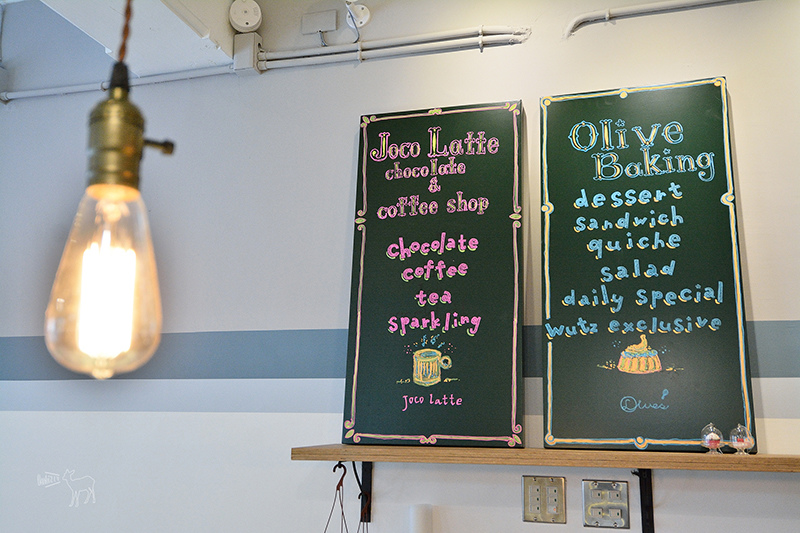 Joco Latte
chocolate
&
coffee shop
chocolate
coffee
tea
sparkling
Joco latte
Olive
Baking
dessert
sandwich
quiche
salad
daily special
wutz exclusive